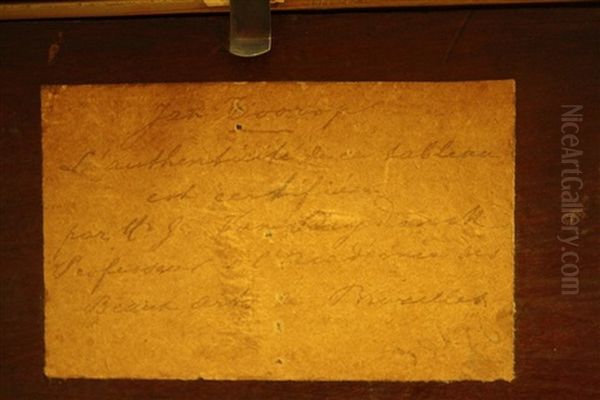 Jan Toorop
L'authenticité de ce tableau
est certifiée
par Mr J. Van
Professeur à l'Académie des
Beaux Arts de Bruxelles
NiceArtGallery.com